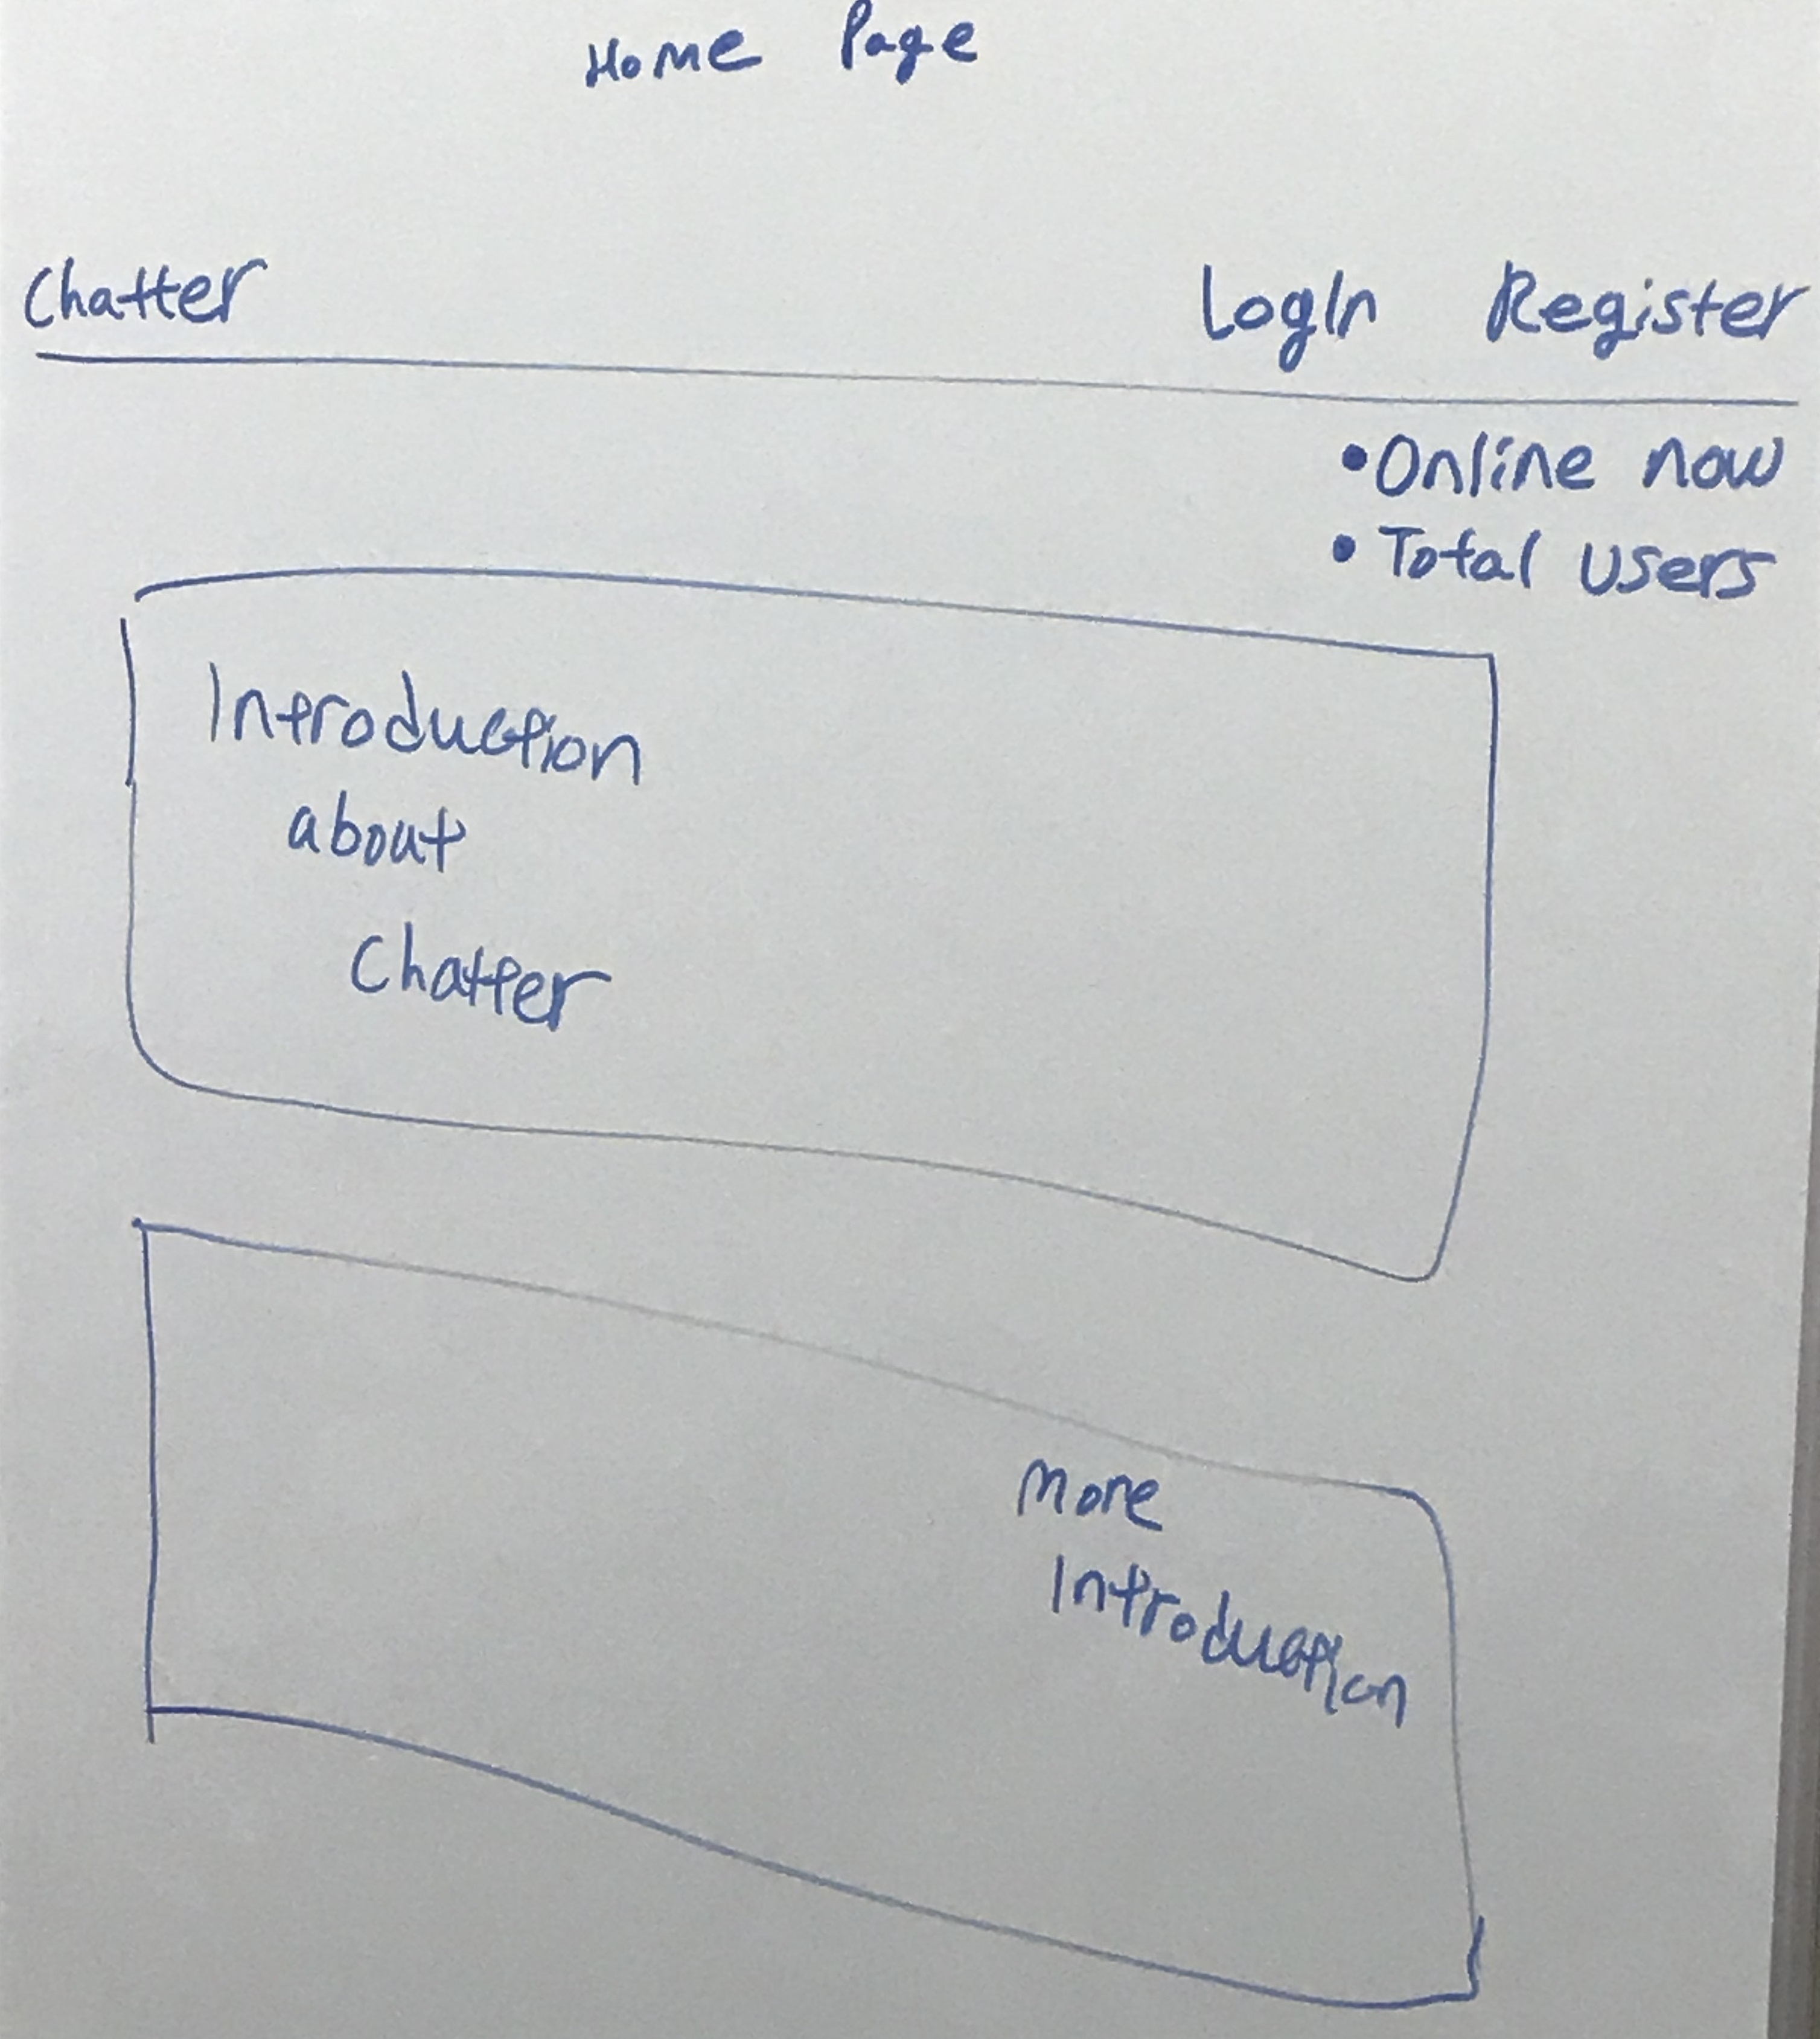 Home Page
Chatter LogIn Register
•Online now
•Total users
Introduction
about
Chatter
More
Introduction